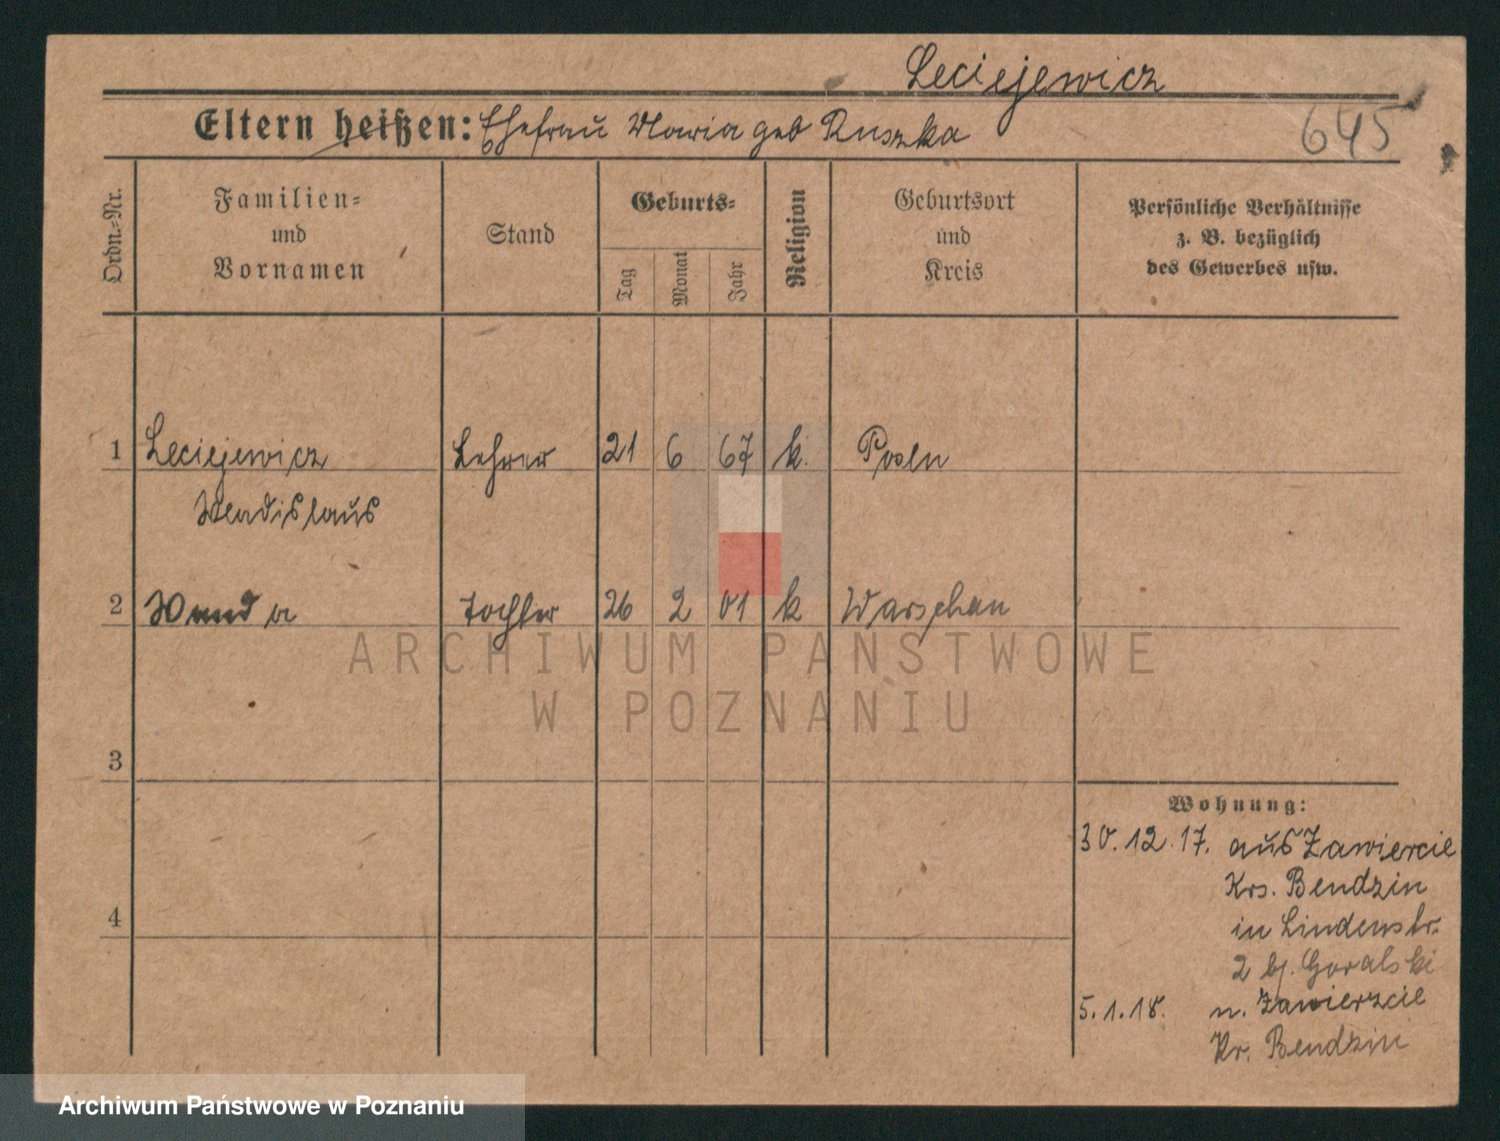 Leciejewicz
Eltern heißen: Ehefrau Maria geb Ruszka
645
Ordn.-Nr.
Familien-
und
Vornamen
Stand
Geburts-
Tag
Monat
Jahr
Religion
Geburtsort
und
Kreis
Persönliche Verhältnisse
z. B. bezüglich
des Gewerbes usw.
1 Leciejewicz Lehrer 21 6 67 k. Posen
Wladislaus
2 Wanda Tochter 26 2 01 k Warschau
ARCHIWUM PAŃSTWOWE
W POZNANIU
3
Wohnung:
30.12.17. aus Zawiercie
Krs. Bendzin
in Lindenstr.
4
2 bj. Goralski
5.1.18. n. Zawierzcie
Kr. Bendzin
Archiwum Państwowe w Poznaniu